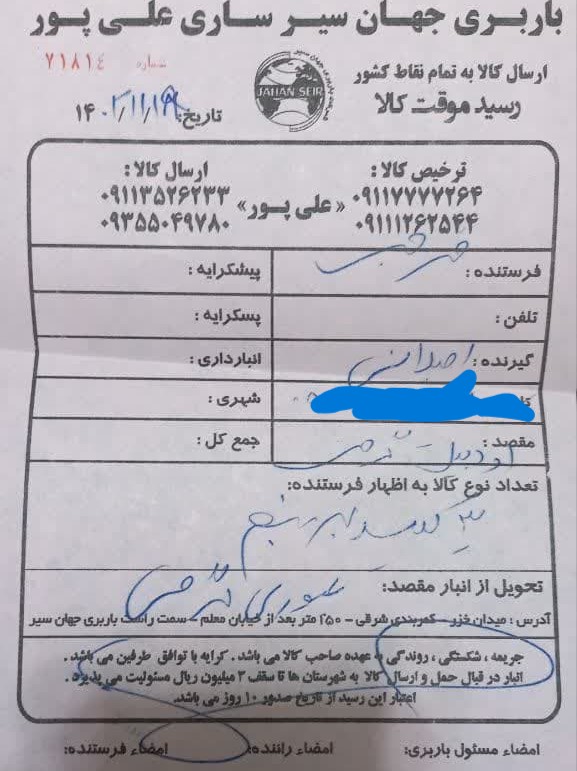 باربری جهان سیر ساری علی پور
ارسال کالا به تمام نقاط کشور
شماره ۷۱۸۱۴
JAHAN SEIR
رسید موقت کالا
تاریخ: ۱۴۰۲/۱۱/۱۹
ترخیص کالا:
ارسال کالا:
۰۹۱۱۷۷۷۷۲۶۴
«علی پور»
۰۹۱۱۳۵۲۶۲۳۳
۰۹۱۱۱۲۶۲۵۴۴
۰۹۳۵۵۰۴۹۷۸۰
فرستنده:
پیشکرایه:
تلفن:
پسکرایه:
گیرنده: اصلانی
انبارداری:
شهری:
مقصد: اردبیل
جمع کل:
تعداد نوع کالا به اظهار فرستنده:
تحویل از انبار مقصد:
آدرس: میدان خزر - کمربندی شرقی - ۲۵۰ متر بعد از خیابان معلم - سمت راست باربری جهان سیر
جریمه، شکستگی، روندگی به عهده صاحب کالا می باشد. کرایه با توافق طرفین می باشد.
انبار در قبال حمل و ارسال کالا به شهرستان ها تا سقف ۳ میلیون ریال مسئولیت می پذیرد.
اعتبار این رسید از تاریخ صدور ۱۰ روز می باشد.
امضاء مسئول باربری:
امضاء راننده:
امضاء فرستنده: